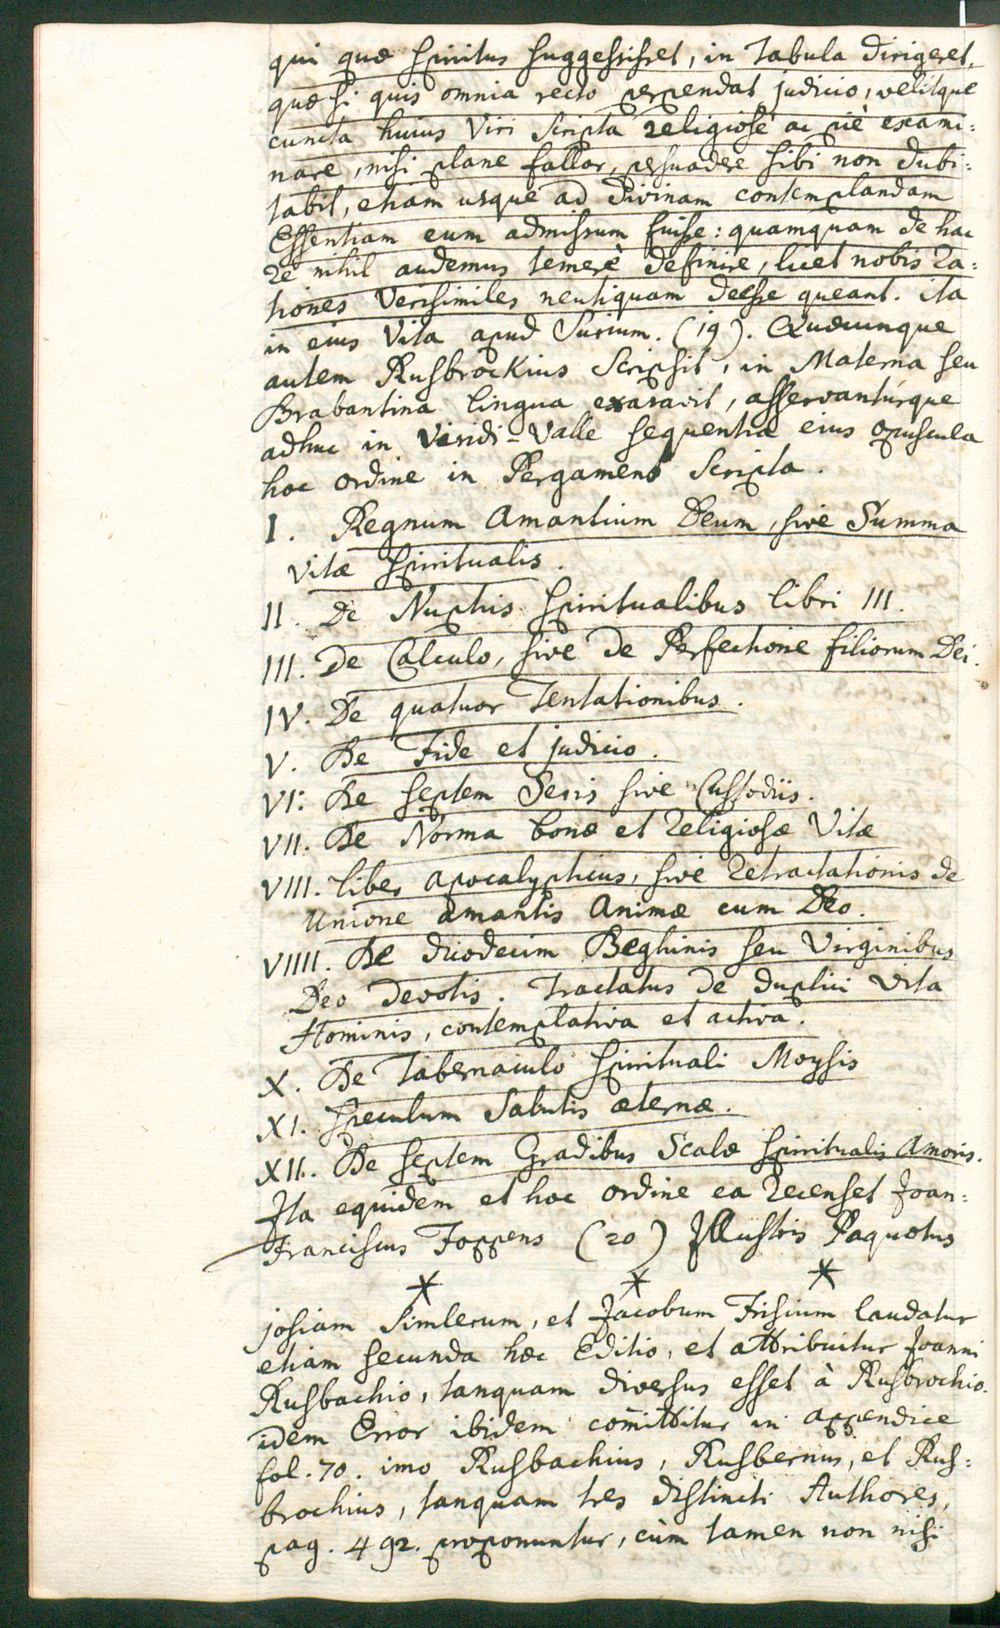 qui quæ spiritus suggessisset, in Tabula dirigeret,
quæ si quis omnia recto perpendat judicio, velitque
cuncta huius Viri Scripta religiosè ac piè exami=
nare, nisi plane fallor, persuadere sibi non dubi=
tabit, etiam usque ad Divinam contemplandam
Essentiam eum admissum fuisse: quamquam de hac
re nihil audemus temerè definire, licet nobis ra=
tiones Verisimiles neutiquam deesse queant. ita
in eius Vita apud Surium. (19). Quæcunque
autem Rusbrockius Scripsit, in Materna seu
Brabantina lingua exaravit, asservantúrque
adhuc in Viridi-Valle sequentia eius opuscula
hoc ordine in Pergameno Scripta.
I. Regnum Amantium Deum, sive Summa
vitæ spiritualis.
II. De Nuptiis spiritualibus libri III.
III. De Calculo, sive de Perfectione filiorum Dei.
IV. De quatuor Tentationibus.
V. De Fide et judicio.
VI. De septem Seris sive Custodiis.
VII. De Norma bonæ et religiosæ Vitæ
VIII. liber apocalypticus, sive retractationis de
Unione amantis Animæ cum Deo.
VIIII. De duodecim Beghinis seu Virginibus
Deo devotis. Tractatus de duplici vita
Hominis, contemplativa et activa.
X. De Tabernaculo spirituali Moysis
XI. Speculum Salutis æternæ.
XII. De septem Gradibus Scalæ spiritualis Amoris.
Ita equidem et hoc ordine ea recenset Joan=
Franciscus Foppens (20) Illustris Paquotus
* * *
josiam Simlerum, et Jacobum Frisium laudatur
etiam secunda hæc Editio, et attribuitur Joanni
Rusbachio, tanquam diversus esset à Rusbrochio.
idem Error ibidem com̄ittitur in appendice
fol. 70. imo Rusbachius, Rusbernus, et Rus=
brochius, tanquam tres distincti Authores,
pag. 492. proponuntur, cùm tamen non nisi